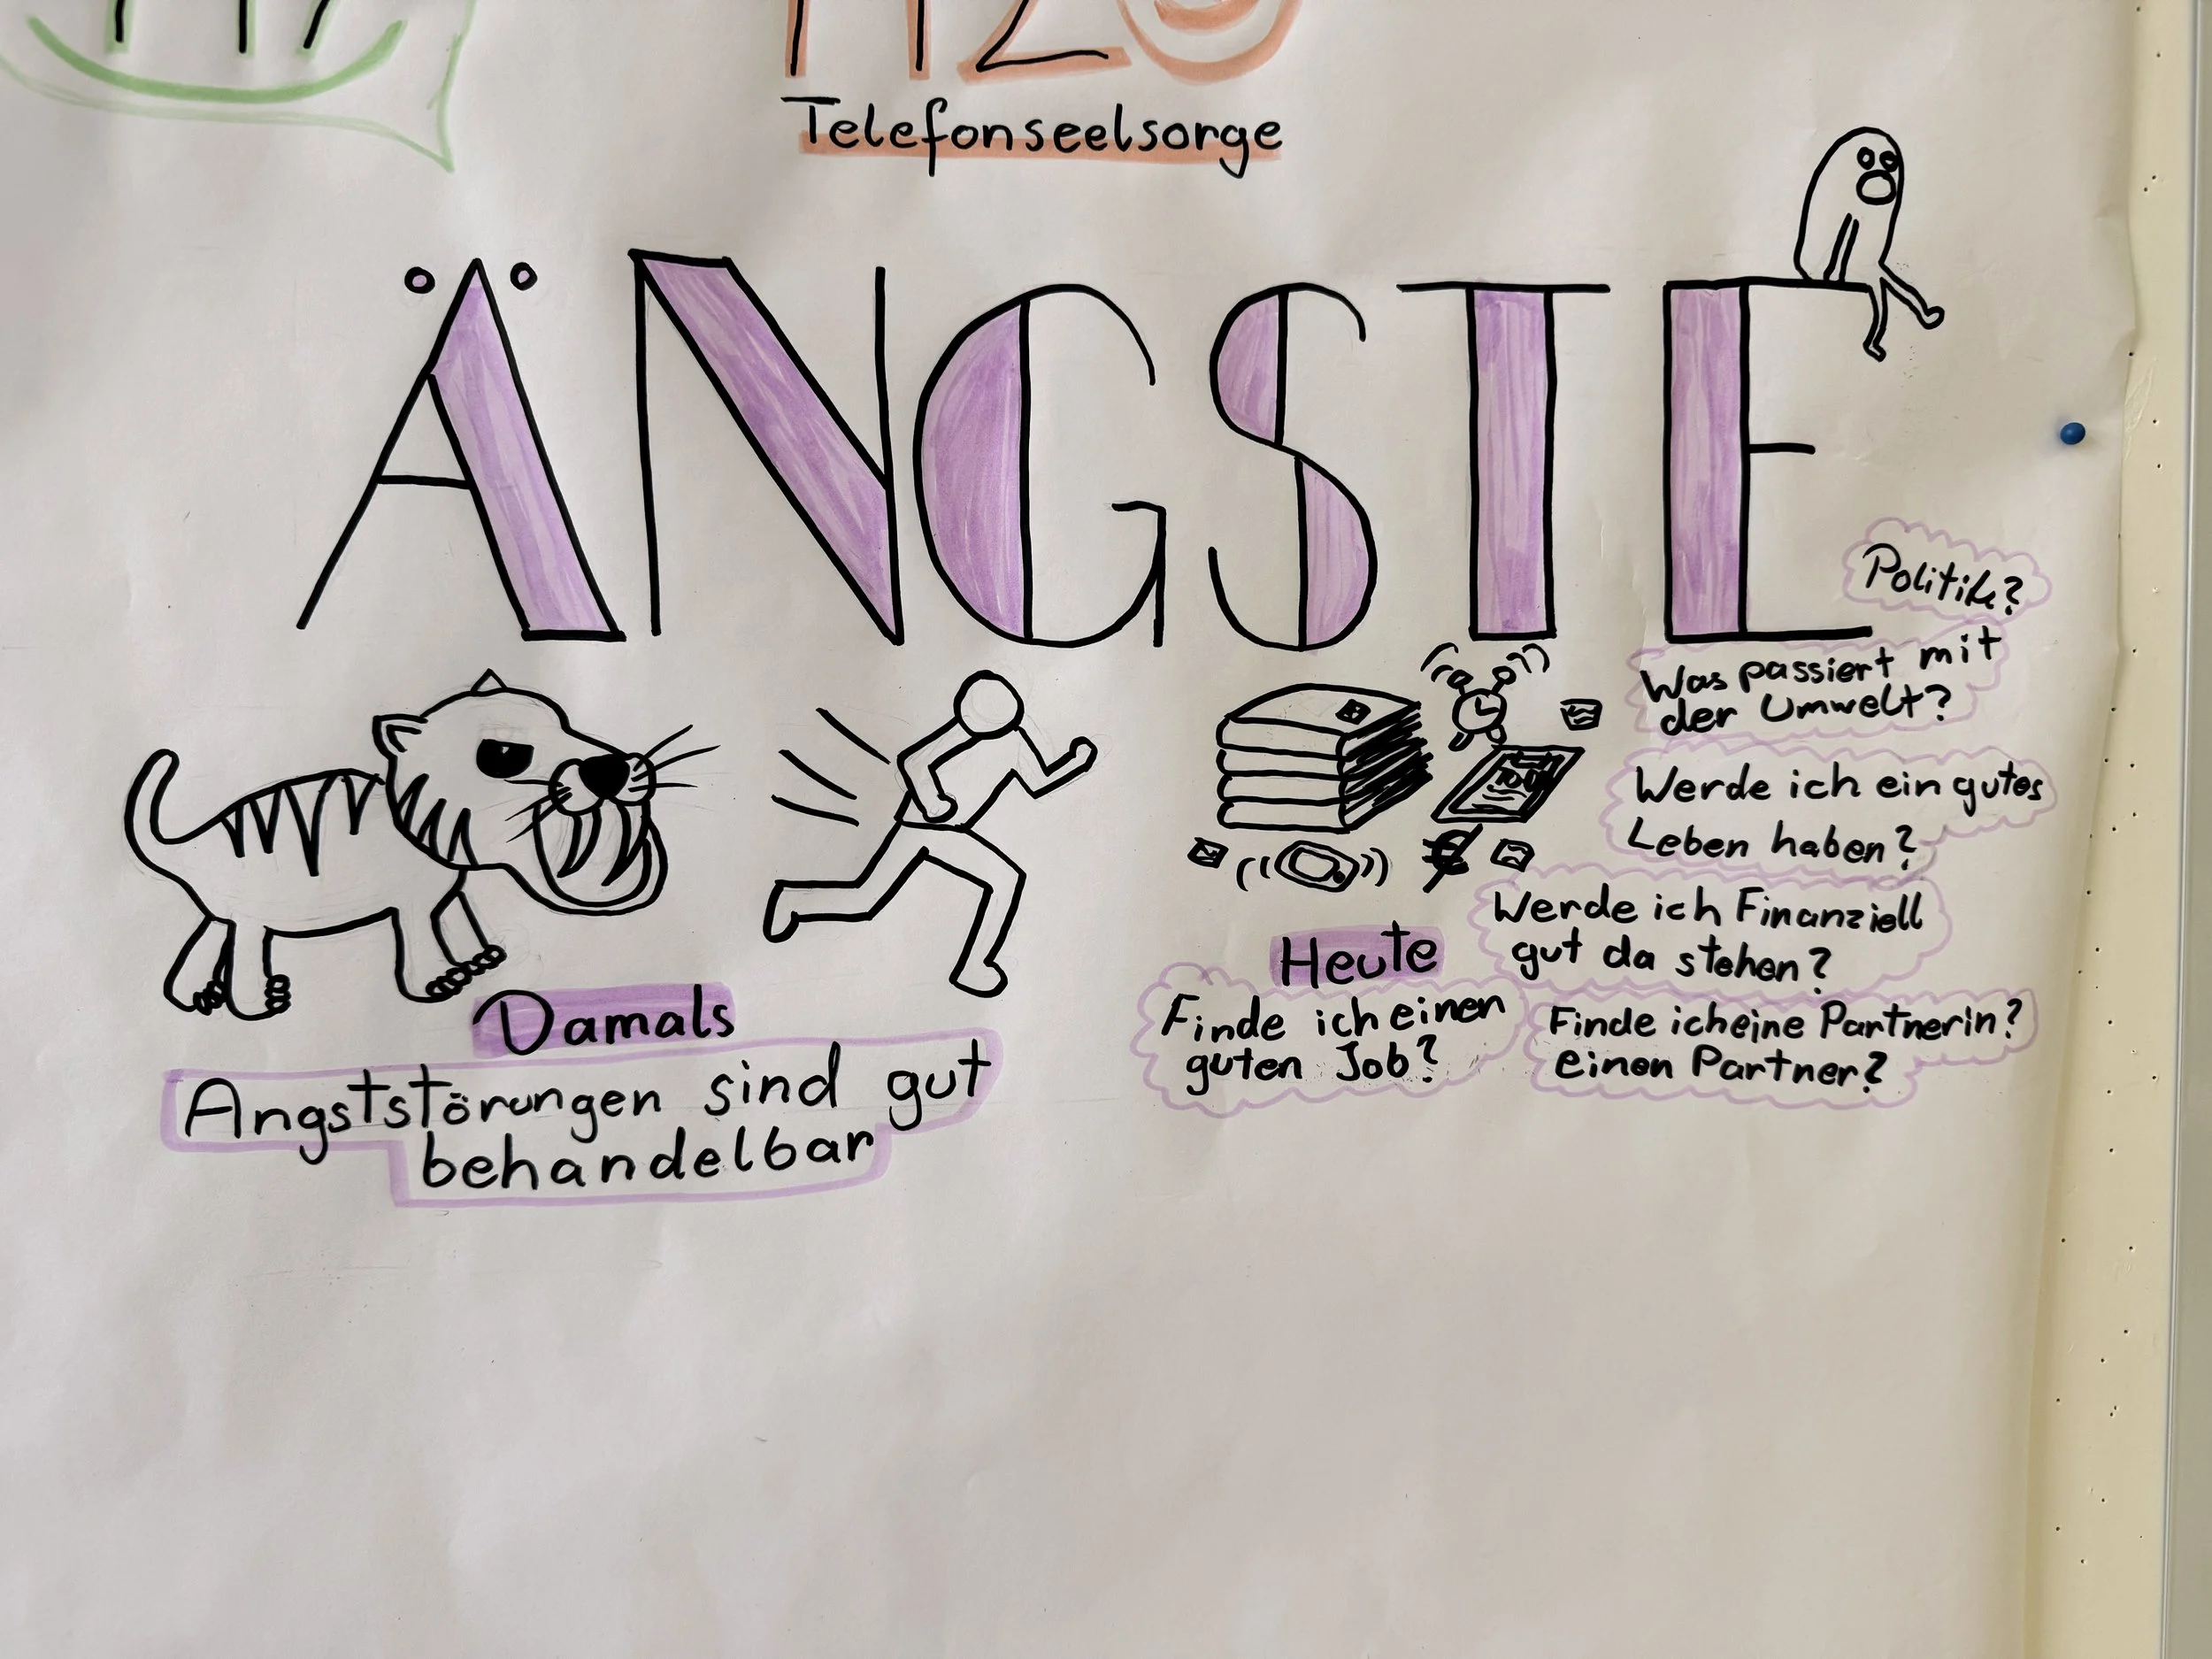 Telefonseelsorge
ÄNGSTE
Politik?
Was passiert mit
der Umwelt?
Werde ich ein gutes
Leben haben?
Werde ich Finanziell
gut da stehen?
Heute
Finde ich einen
guten Job?
Finde ich eine Partnerin?
einen Partner?
Damals
Angststörungen sind gut
behandelbar